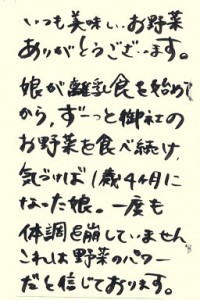 いつも美味しいお野菜
ありがとうございます。
娘が離乳食を始めて
から、ずーっと御社の
お野菜を食べ続け、
気づけば1歳4ヶ月に
なった娘。一度も
体調を崩していません。
これは野菜のパワー
だと信じております。